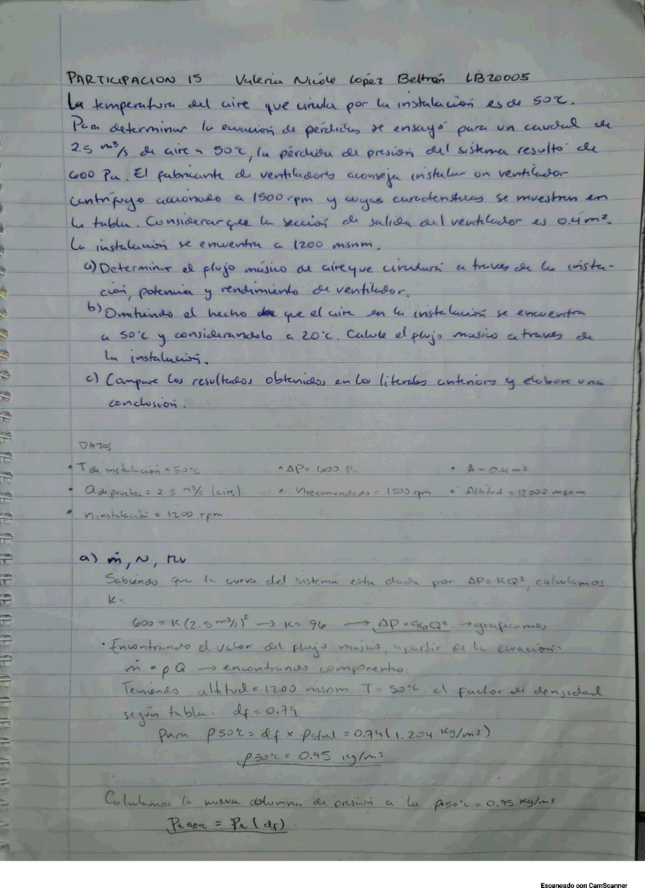 PARTICIPACION 15 Valeria Nicole López Beltrán LB20005
La temperatura del aire que circula por la instalación es de 50°C.
Para determinar la ecuación de pérdidas se ensayó para un caudal de
2.5 m³/s de aire a 50°C, la pérdida de presión del sistema resulto de
600 Pa. El fabricante de ventiladores aconseja instalar un ventilador
centrífugo accionado a 1500 rpm y cuyas características se muestran en
la tabla. Considerar que la sección de salida del ventilador es 0.4 m².
La instalación se encuentra a 1200 msnm.
a) Determinar el flujo másico de aire que circulará a traves de la insta-
ción, potencia y rendimiento de ventilador.
b) Omitiendo el hecho de que el aire en la instalación se encuentra
a 50°C y considerandolo a 20°C. Calcule el flujo masico a traves de
la instalación.
c) Compare los resultados obtenidos en los literales anteriores y elabore una
conclusión.
DATOS
• T de instalación = 50°C • ΔP = 600 P. • A = 0.4 m²
• Q de prueba = 2.5 m³/s (aire) • n recomendado = 1500 rpm • Altitud = 12000 msnm
• n instalación = 1200 rpm
a) ṁ, N, nv
Sabiendo que la curva del sistema esta dada por ΔP = KQ², calculamos
K.
600 = K (2.5 m³/s)² → K = 96 → ΔP = 96Q² → graficamos
• Encontrando el valor del flujo masico, a partir de la ecuación:
ṁ = ρ Q → encontrando componentes:
Teniendo altitud = 1200 msnm T = 50°C el factor de densidad
según tabla: df = 0.79
Para ρ50°C = df × ρstd = 0.79 (1.204 Kg/m³)
ρ50°C = 0.95 Kg/m³
Calculamos la nueva columna de presión a la ρ50°C = 0.95 Kg/m³
= Pt (df)